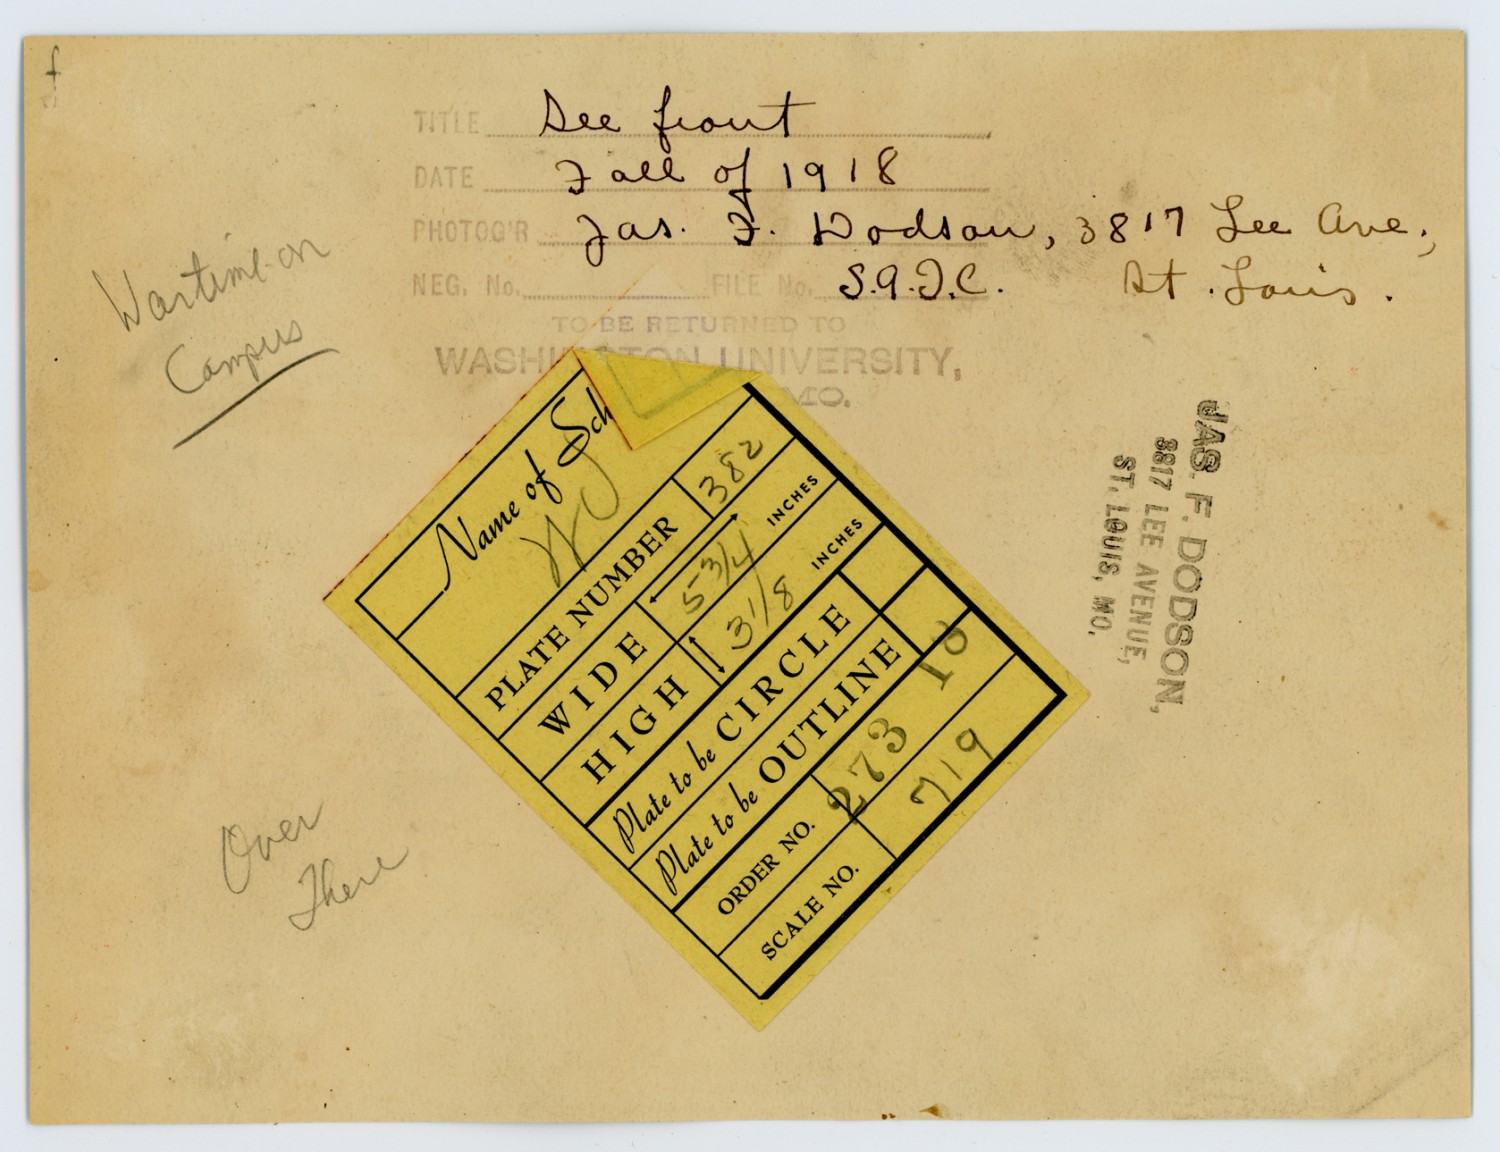 TITLE See front
DATE Fall of 1918
PHOTOG'R Jas. F. Dodson, 3817 Lee Ave.,
St. Louis.
NEG. No. FILE No. S.A.T.C.
TO BE RETURNED TO
WASHINGTON UNIVERSITY,
MO.
Wartime on
Campus
Over
There
JAS. F. DODSON,
3817 LEE AVENUE,
ST. LOUIS, MO.
Name of Sch
WU
PLATE NUMBER 382
WIDE 5 3/4 INCHES
HIGH 3 1/8 INCHES
Plate to be CIRCLE
Plate to be OUTLINE
ORDER NO. 273 18
SCALE NO. 719